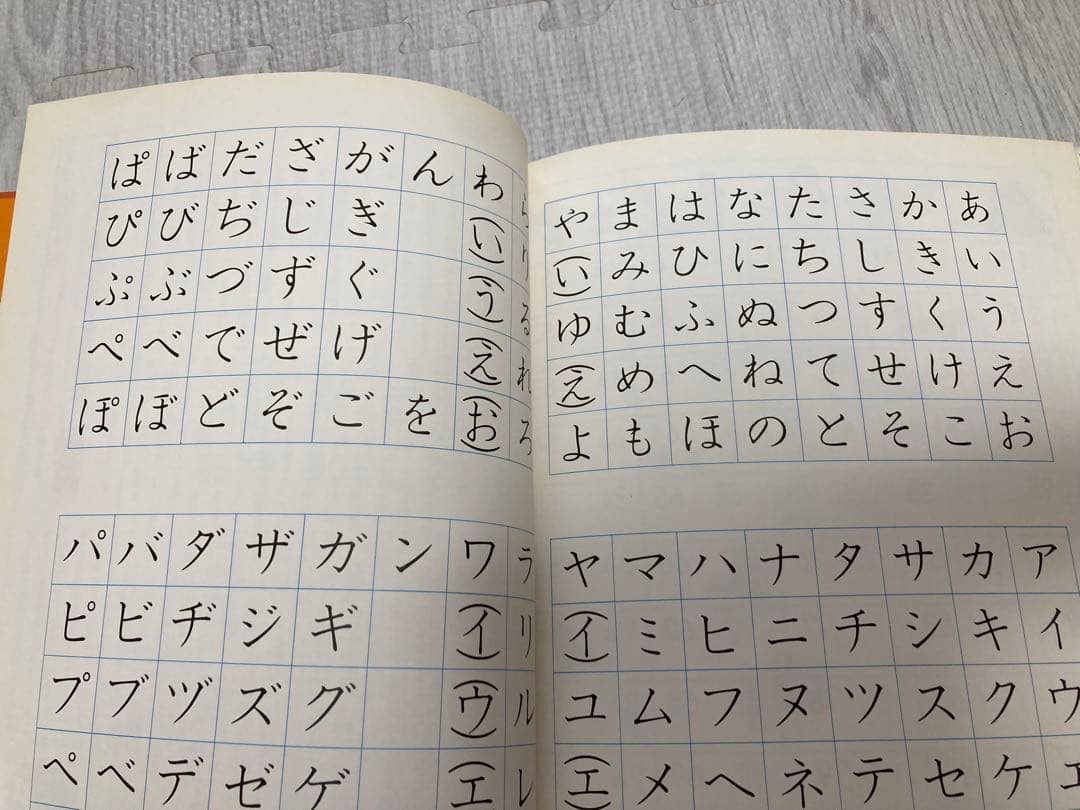 あいうえお
かきくけこ
さしすせそ
たちつてと
なにぬねの
はひふへほ
まみむめも
や(い)ゆ(え)よ
らりるれろ
わ(い)(う)(え)(お)
んを
がぎぐげご
ざじずぜぞ
だぢづでど
ばびぶべぼ
ぱぴぷぺぽ
アイウエ
カキクケ
サシスセ
タチツテ
ナニヌネ
ハヒフヘ
マミムメ
ヤ(イ)ユ(エ)
ラリルレ
ワ(イ)(ウ)(エ)
ン
ガギグゲ
ザジズゼ
ダヂヅデ
バビブベ
パピプペ